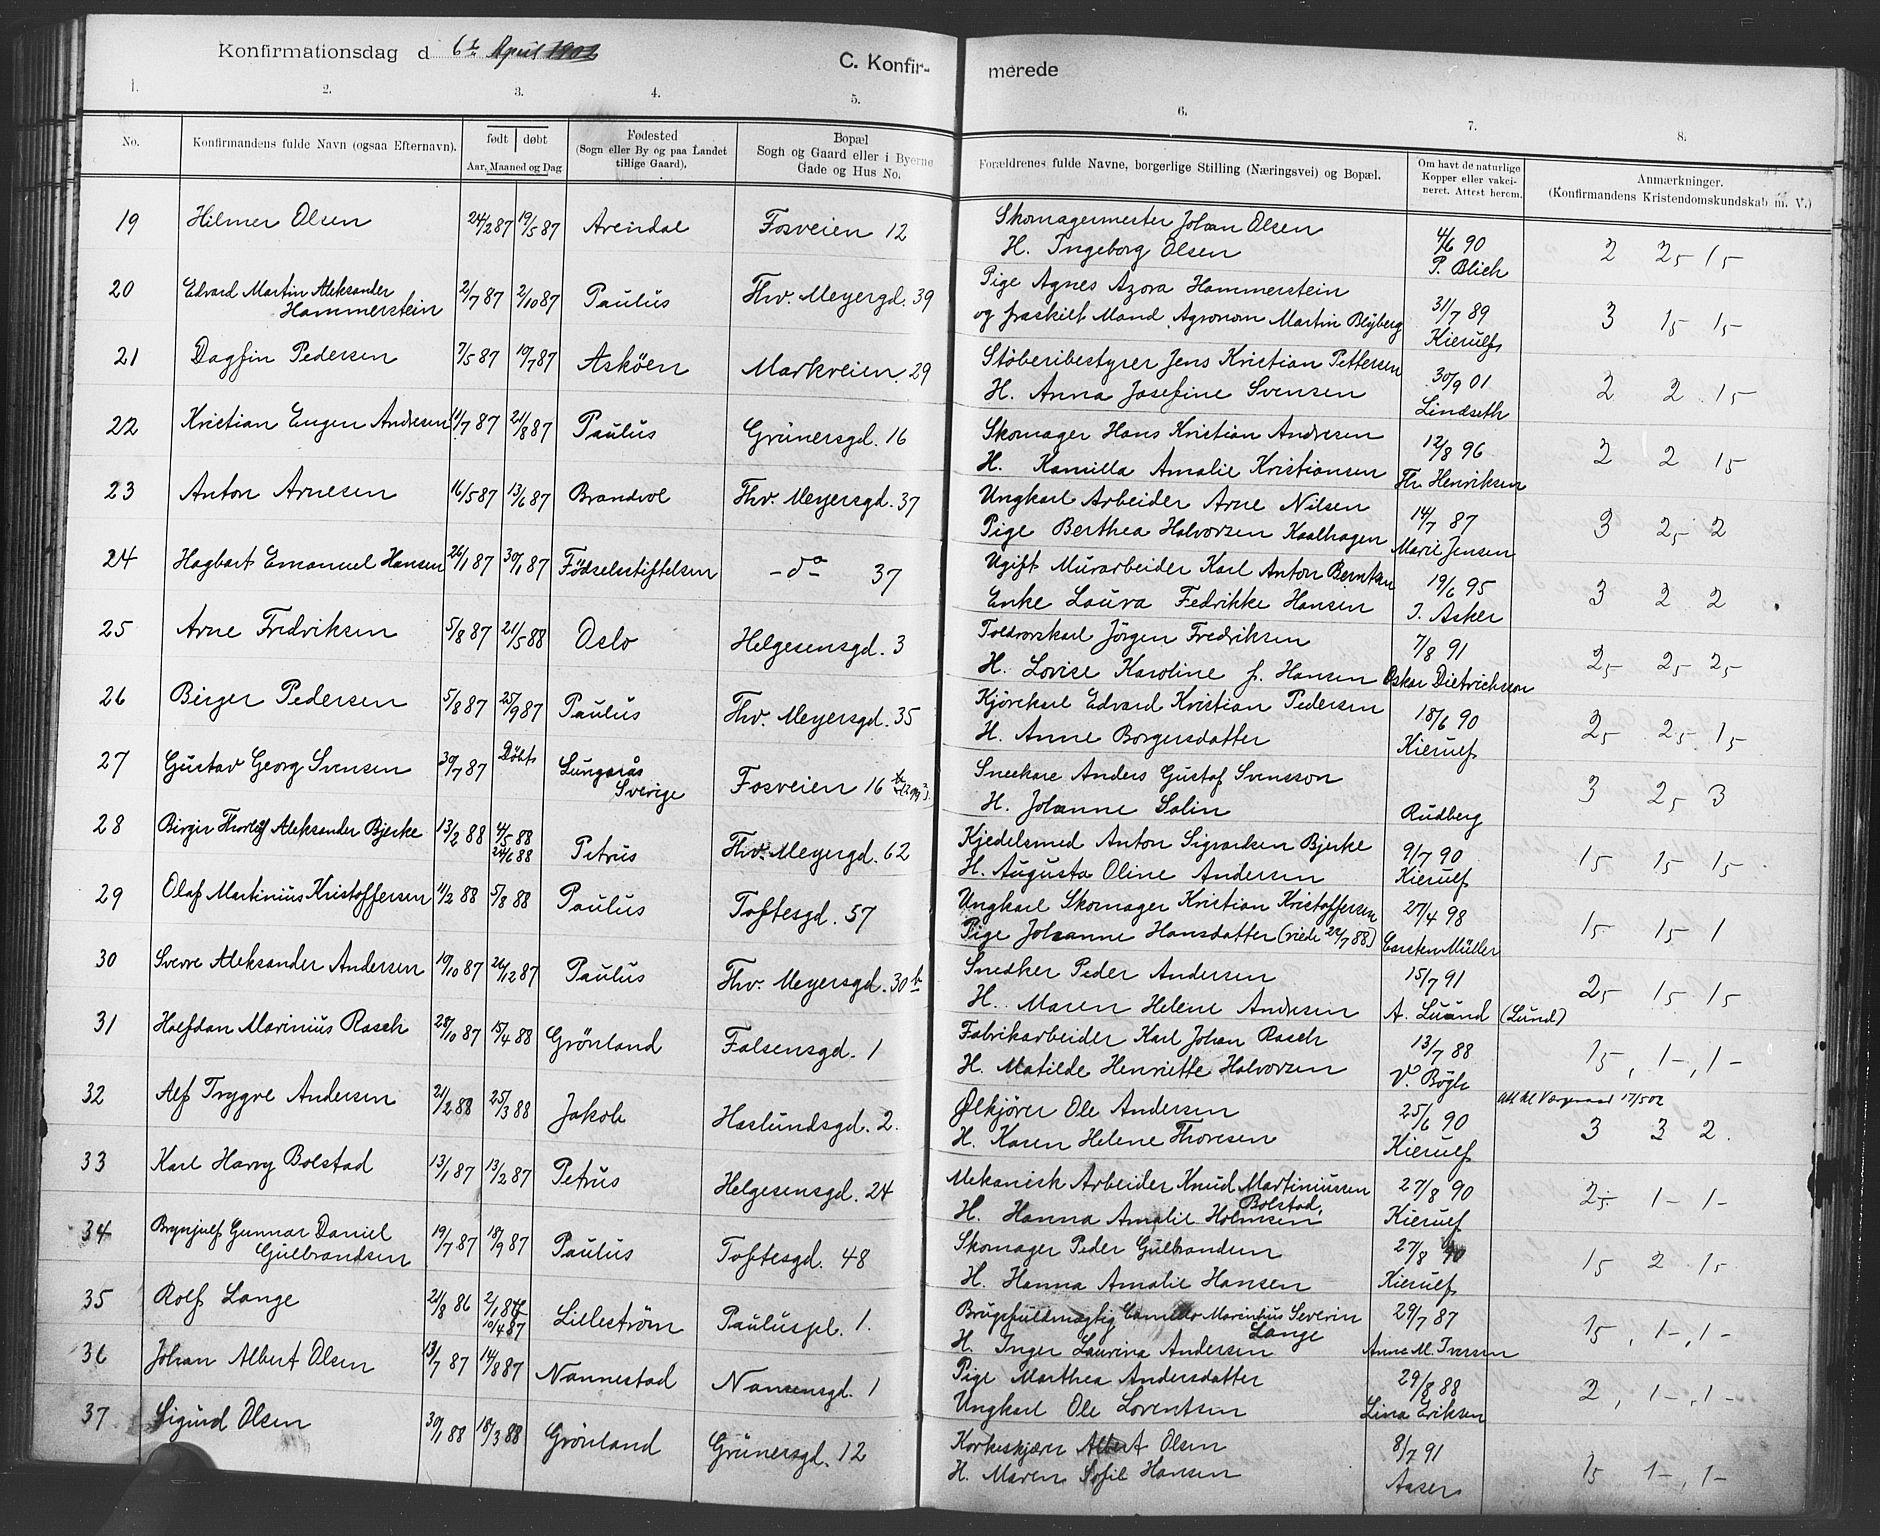 Konfirmationsdag d. 6te April 1902
C. Konfir-
merede
1. 2. 3. 4. 5. 6. 7. 8.
No.
Konfirmandens fulde Navn (ogsaa Efternavn).
født døbt
Aar, Maaned og Dag
Fødested
(Sogn eller By og paa Landet
tillige Gaard).
Bopæl
Sogn og Gaard eller i Byerne
Gade og Hus No.
Forældrenes fulde Navne, borgerlige Stilling (Næringsvei) og Bopæl.
Om havt de naturlige
Kopper eller vakci-
neret. Attest herom.
Anmærkninger.
(Konfirmandens Kristendomskundskab m. V.)
19 Hilmer Olsen 24/2 87 19/5 87 Arendal Fosveien 12
Skomagermester Johan Olsen
H. Ingeborg Olsen
4/6 90
P. Blich
2 25 15
20 Edvard Martin Aleksander
Hammerstein
2/7 87 2/10 87 Paulus Thv. Meyergd. 39
Pige Agnes Azora Hammerstein
og fraskilt Mand, Agronom Martin Blyberg
31/7 89
Kierulf
3 15 15
21 Dagfin Pedersen 7/5 87 19/7 87 Asköen Markveien 29
Støberibestyrer Jens Kristian Pettersen
H. Anna Josefine Svensen
30/9 01
Lindseth
2 2 15
22 Kristian Eugen Andresen 11/7 87 21/8 87 Paulus Grünersgd. 16
Skomager Hans Kristian Andresen
H. Kamilla Amalie Kristiansen
12/8 96
Fr. Henriksen
2 2 15
23 Anton Arnesen 16/5 87 13/6 87 Brandvol Thv. Meyersgd. 37
Ungkarl Arbeider Arne Nilsen
Pige Berthea Halvorsen Kaalhagen
14/7 87
Marie Jensen
3 25 2
24 Hagbart Emanuel Hansen 26/1 87 30/1 87 Födselsstiftelsen - do - 37
Ugift Murarbeider Karl Anton Berntsen
Enke Laura Fedrikke Hansen
19/6 95
I. Asker
3 2 2
25 Arne Fredriksen 5/8 87 21/5 88 Oslo Helgesensgd. 3
Toldrorskarl Jörgen Fredriksen
H. Lovise Karoline f. Hansen
7/8 91
Oskar Dietrichson
25 25 25
26 Birger Pedersen 5/8 87 25/9 87 Paulus Thv. Meyersgd. 35
Kjörekarl Edvard Kristian Pedersen
H. Anne Borgersdatter
18/6 90
Kierulf
25 25 15
27 Gustav Georg Svensen 30/7 87 Döbt Lungarås
Sverige
Fosveien 16 b
Snedkare Anders Gustaf Svensson
H. Johanne Salin
Rudberg
3 25 3
28 Birger Thorlef Aleksander Bjerke 13/2 88 4/5 88
24/6 88
Petrus Thv. Meyergd. 62
Kjedelsmed Anton Sigvardsen Bjerke
H. Augusta Oline Andersen
9/7 90
Kierulf
15 15 15
29 Olaf Martinius Kristoffersen 11/2 88 5/8 88 Paulus Toftesgd. 57
Ungkarl Skomager Kristian Kristoffersen
Pige Johanne Hansdatter (viede 22/7 88)
27/4 98
Carsten Müller
15 15 1
30 Sverre Aleksander Andersen 19/10 87 26/12 87 Paulus Thv. Meyersgd. 30 b
Snedker Peder Andersen
H. Maren Helene Andresen
15/7 91
A. Luund (Lund)
25 15 15
31 Halfdan Marinius Rasch 28/10 87 15/4 88 Grönland Falsensgd. 1
Fabrikarbeider Karl Johan Rasch
H. Matilde Henriette Halvorsen
13/7 88
V. Bögh
15, 1-, 1-
32 Alf Trygve Andersen 21/2 88 25/3 88 Jakob Haslundsgd. 2.
Ølkjører Ole Andersen
H. Karen Helene Thoresen
25/6 90
Kierulf
3 3 2.
33 Karl Harry Bolstad 13/1 87 13/2 87 Petrus Helgesensgd. 24
Mekanisk Arbeider Knud Martiniussen
Bolstad,
H. Hanna Amalie Holmsen
27/8 90
Kierulf
25 1- 1-
34 Brynjulf Gunnar Daniel
Gulbrandsen
19/7 87 18/9 87 Paulus Toftesgd. 48
Skomager Peder Gulbrandsen
H. Hanna Amalie Hansen
27/8 90
Kierulf
15 2 15
35 Rolf Lange 21/8 86 2/1 87
10/4 87
Lilleström Pauluspl. 1.
Brugsfuldmægtig Camillo Marinius Severin
Lange
H. Inger Laurina Andersen
29/7 87
Anne M. Iversen
15, 1-, 1-
36 Johan Albert Olsen 13/7 87 14/8 87 Nannestad Nansensgd. 1
Pige Marthea Andersdatter
Ungkarl Ole Lorentsen
29/8 88
Lina Eriksen
2, 1-, 1-
37 Sigurd Olsen 30/1 88 18/3 88 Grönland Grünersgd. 12
Korkeskjærer Albert Olsen
H. Maren Sofie Hansen
8/7 91
Aasen
15 1-, 1-